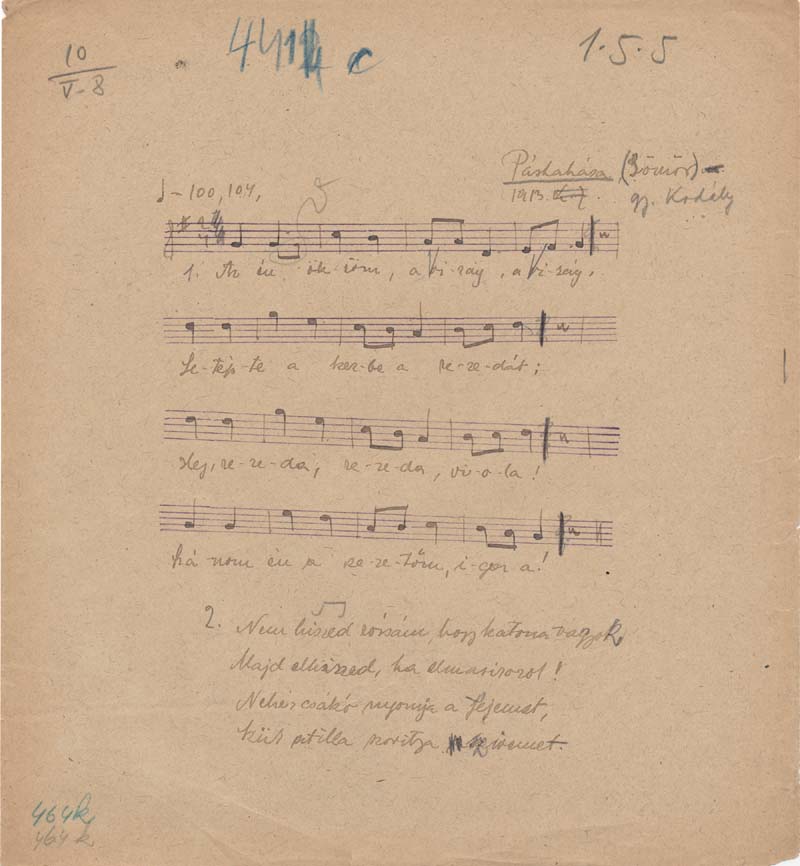 10
V-8
1·5·5
Páskaháza (Gömör)
1913.
gy. Kodály
♩ = 100, 104,
1. Az én ök-röm, a vi-rág, a vi-rág,
Le-tép-te a ker-be a re-ze-dát;
Hej, re-ze-da, re-ze-da, vi-o-la!
Bá-nom én a sze-re-tőm, i-gaz a!
2. Nem hiszed rózsám, hogy katona vagyok
Majd elhiszed, ha elmasírozol!
Nehéz csákó nyomja a fejemet,
atilla szorítja szivemet.
464k
464 k